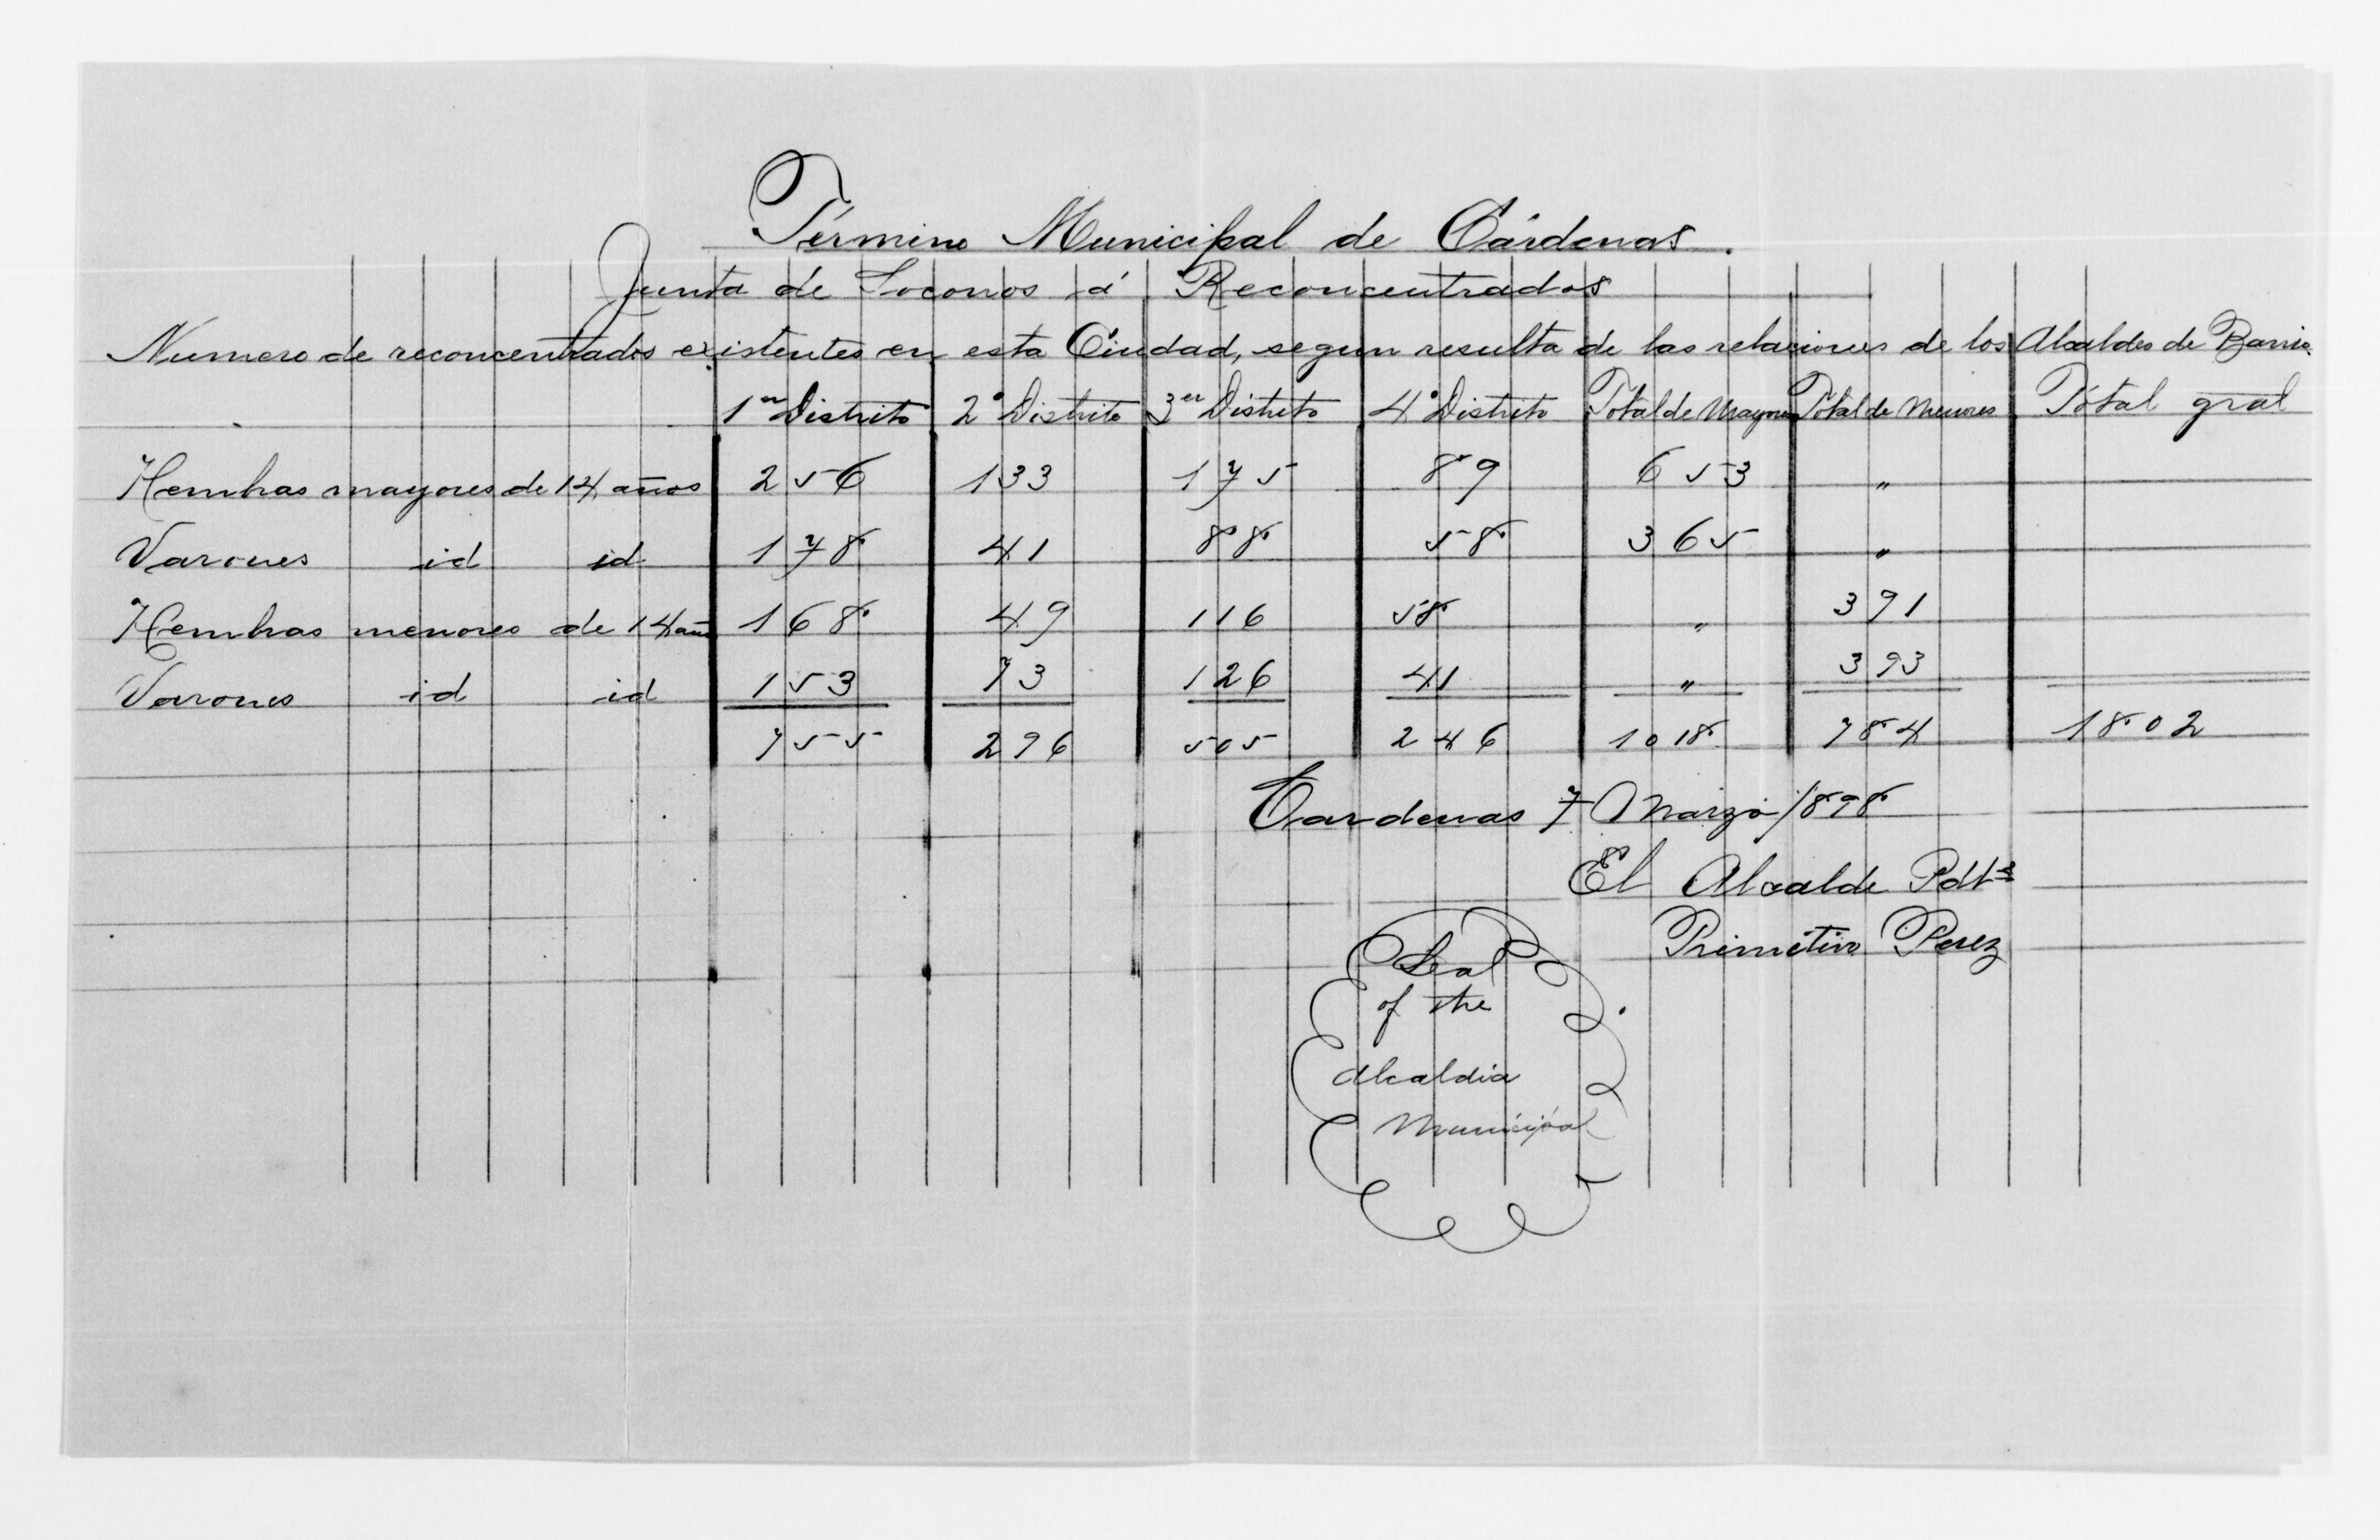 Término Municipal de Cárdenas.
Junta de Socorros á Reconcentrados
Numero de reconcentrados existentes en esta Ciudad, segun resulta de las relaciones de los Alcaldes de Barrio.
1er Distrito 2º Distrito 3er Distrito 4º Distrito Total de Mayores Total de Menores Total gral
Hembras mayores de 14 años 256 133 175 89 653 "
Varones id id 178 41 88 58 365 "
Hembras menores de 14 añs 168 49 116 58 " 391
Varones id id 153 73 126 41 " 393
755 296 505 246 1018 784 1802
Cardenas 7 Marzo/898
El Alcalde Pdte
Primitivo Perez
Seal
of the
Alcaldia
Municipal